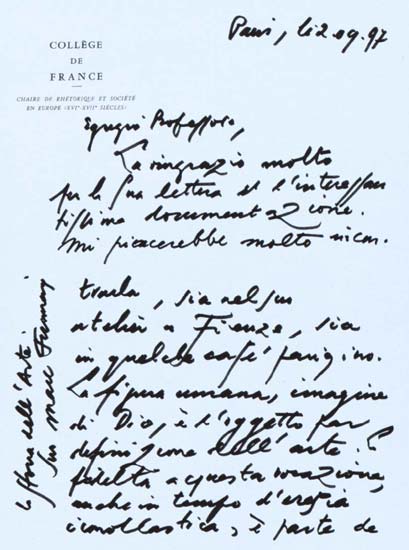 COLLÈGE
DE
FRANCE
CHAIRE DE RHÉTORIQUE ET SOCIÉTÉ
EN EUROPE (XVIe-XVIIe SIÈCLES)
Paris, li 2 09.97
Egregio Professore,
La ringrazio molto
per la Sua lettera et l'interessan
tissima documentazione.
Mi piacerebbe molto incon.
trarla, sia nel suo
atelier a Firenze, sia
in qualche café parigino.
La figura umana, imagine
di Dio, è l'oggetto par
definizione dell'arte. La
fedeltà a questa vocazione,
anche in tempo d'eresia
iconoclastica, è parte de
la storia dell'Arte
Suo Marc Fumaroli